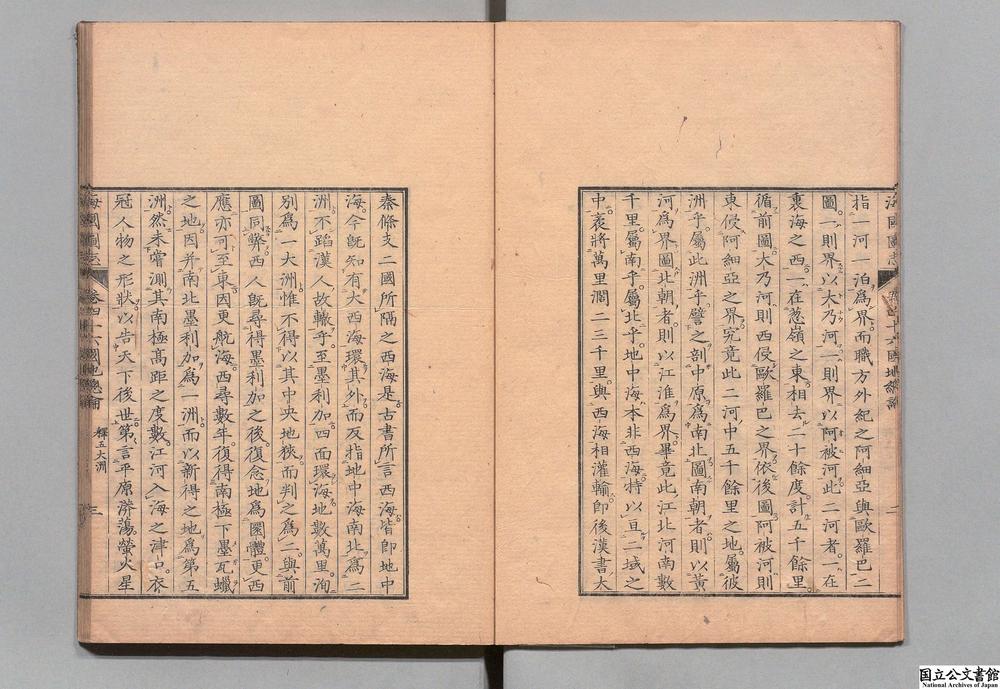 指一河一泊爲界而職方外紀之阿細亞與歐羅巴二
圖一則界以大乃河一則界以阿被河此二河者一在
裏海之西一在葱嶺之東相去二十餘度計五千餘里
循前圖大乃河則西侵歐羅巴之界依後圖阿被河則
東侵阿細亞之界究竟此二河中五千餘里之地屬彼
洲乎屬此洲乎譬之剖中原爲南北圖南朝者則以黃
河爲界圖北朝者則以江淮爲界畢竟此江北河南數
千里屬南乎屬北乎地中海本非西海特以亘二域之
中袤將萬里濶二三千里與西海相灌輸卽後漢書大
秦條支二國所隔之西海是古書所言西海皆卽地中
海今旣知有大西海環其外而反指地中海南北爲二
洲不蹈漢人故轍乎至墨利加四面環海地數萬里洵
別爲一大洲惟不得以其中央地狹而判之爲二與前
圖同弊西人旣尋得墨利加之後復念地爲圜體更西
應亦可至東因更航海西尋數年復得南極下墨瓦蠟
之地因并南北墨利加爲一洲而以新得之地爲第五
洲然未嘗測其南極高距之度數江河入海之津口衣
冠人物之形狀以告天下後世第言平原漭蕩螢火星
海國圖志 卷四十六 國地總論 釋五大洲 三